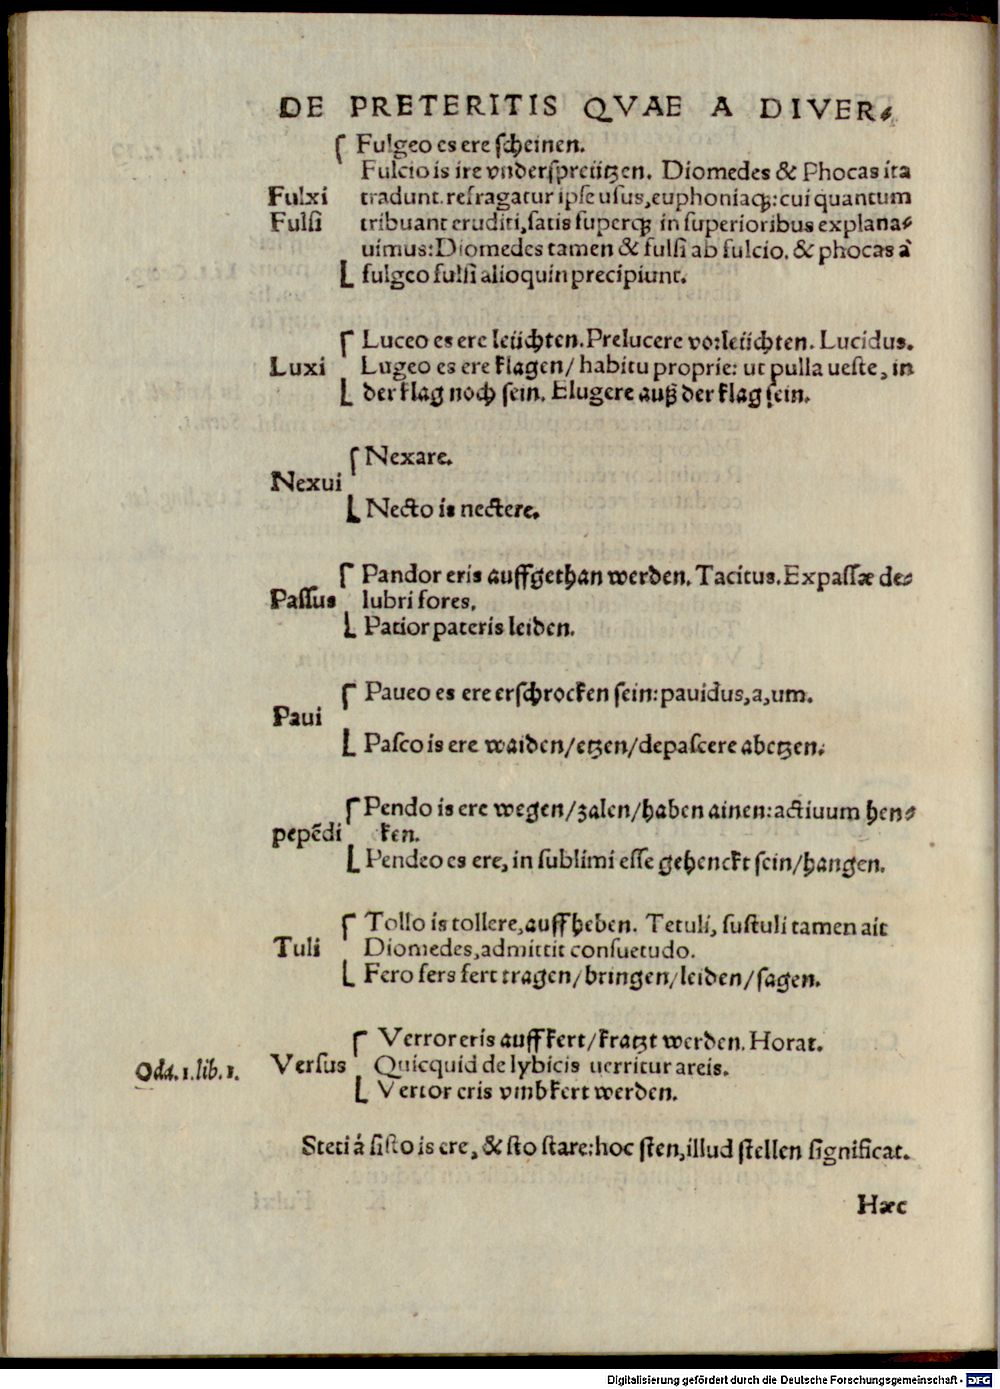 DE PRETERITIS QVAE A DIVER⸗
Fulgeo es ere ſcheinen.
Fulcio is ire vnderſpreützen. Diomedes & Phocas ita
Fulxi tradunt. refragatur ipſe uſus, euphoniaqꝫ: cui quantum
Fulſi tribuant eruditi, ſatis ſuperqꝫ in ſuperioribus explana⸗
uimus: Diomedes tamen & fulſi ab fulcio. & phocas à
fulgeo fulſi alioquin precipiunt.
Luceo es ere leüchten. Prelucere vorleüchten. Lucidus.
Luxi Lugeo es ere klagen/ habitu proprie: ut pulla ueſte, in
der klag noch ſein. Elugere auß der klag ſein.
Nexare.
Nexui
Necto is nectere.
Pandor eris auffgethan werden. Tacitus. Expaſſæ de⸗
Paſſus lubri fores.
Patior pateris leiden.
Paueo es ere erſchrocken ſein: pauidus, a, um.
Paui
Paſco is ere waiden/ etzen/ depaſcere abetzen.
Pendo is ere wegen/ zalen/ haben ainen: actiuum hen⸗
pepēdi ken.
Pendeo es ere, in ſublimi eſſe gehenckt ſein/ hangen.
Tollo is tollere, auffheben. Tetuli, ſuſtuli tamen ait
Tuli Diomedes, admittit conſuetudo.
Fero fers fert tragen/ bringen/ leiden/ ſagen.
Verror eris auffkert/ kratzt werden. Horat.
Oda. 1. lib. 1. Verſus Quicquid de lybicis uerritur areis.
Vertor eris vmbkert werden.
Steti á ſiſto is ere, & ſto ſtare: hoc ſten, illud ſtellen ſignificat.
Hæc
Digitalisierung gefördert durch die Deutsche Forschungsgemeinschaft - DFG